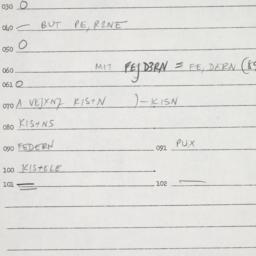 030 O
040 — BUT PE, RZNE
050 O
060 MIT PEJD3RN = FE, DERN
061 O
070 KIS+N )-KISN
080 KIS+NS
090 FEDERN 091 PUX
100 KIS+ELE
101 = 102 —